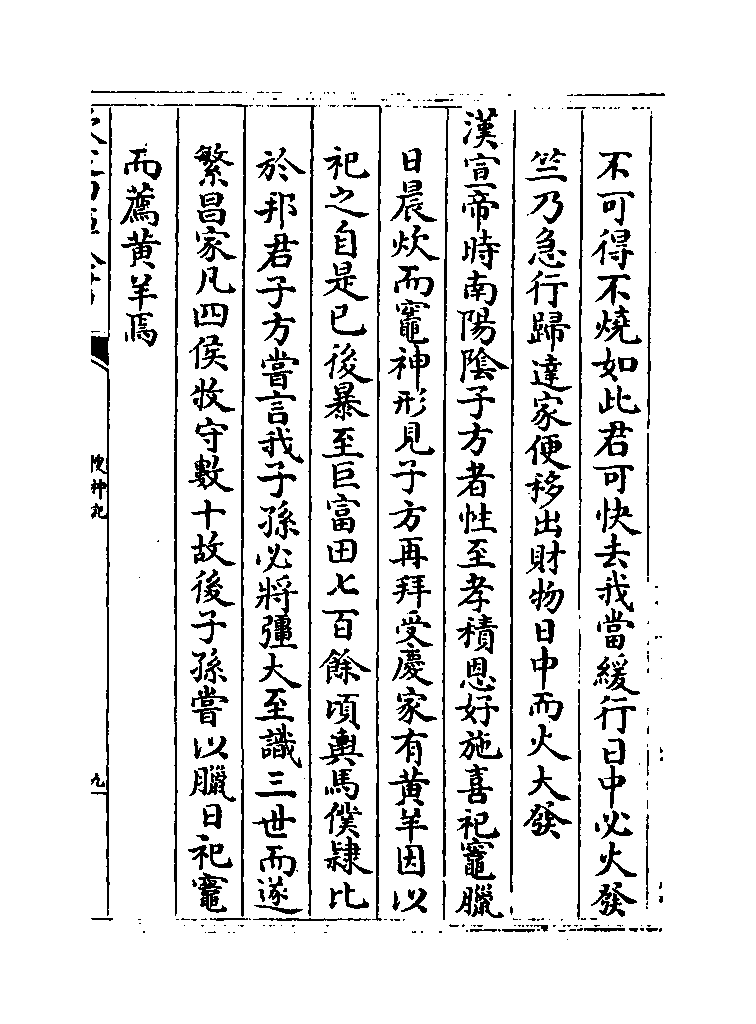 不可得不燒如此君可快去我當緩行日中必火發
竺乃急行歸達家便移出財物日中而火大發
漢宣帝時南陽陰子方者性至孝積恩好施喜祀竈臘
日晨炊而竈神形見子方再拜受慶家有黃羊因以
祀之自是已後暴至巨富田七百餘頃輿馬僕隸比
於邦君子方嘗言我子孫必將彊大至識三世而遂
繁昌家凡四侯牧守數十故後子孫嘗以臘日祀竈
而薦黃羊焉
搜神記
九